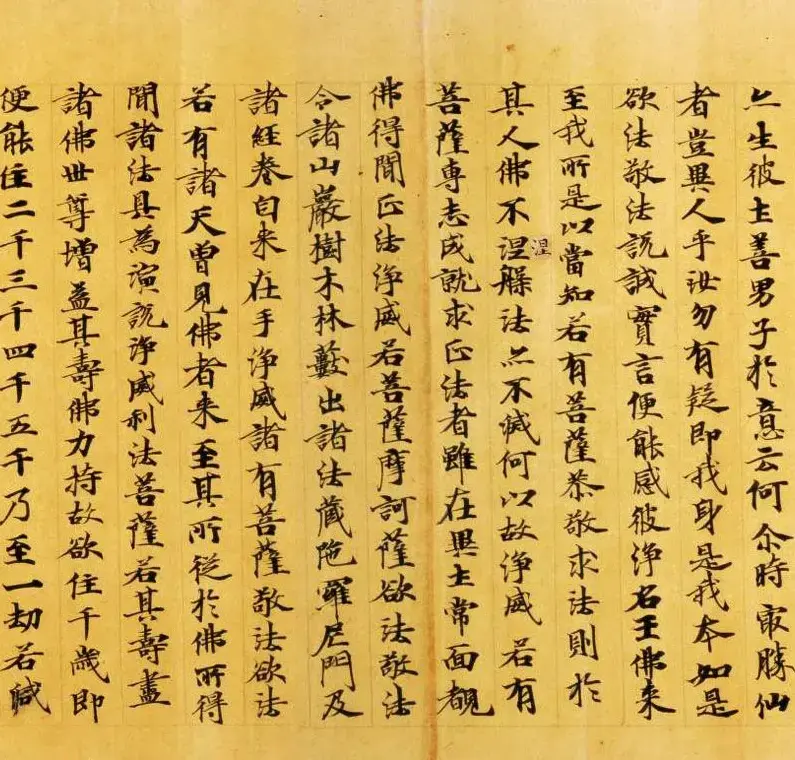 亦生彼土善男子於意云何尒時寂勝仙
者豈異人乎汝勿有疑即我身是我本如是
欲法敬法說誠實言便能感彼淨名王佛来
至我所是以當知若有菩薩恭敬求法則於
涅
其人佛不涅槃法亦不滅何以故淨威若有
菩薩専志成就求正法者雖在異土常面覩
佛得聞正法淨威若菩薩摩訶薩欲法敬法
令諸山巖樹木林藪出諸法藏陀羅尼門及
諸經卷自来在手淨威諸有菩薩敬法欲法
若有諸天曾見佛者来至其所從於佛所得
聞諸法具為演說淨威利法菩薩若其壽盡
諸佛世尊增益其壽佛力持故欲住千歲即
便能住二千三千四千五千乃至一劫若減